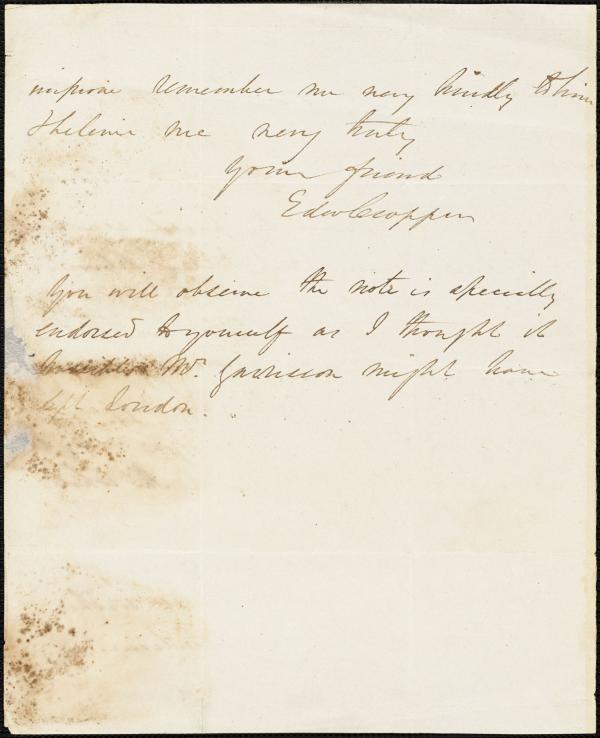 improve remember me very kindly to him
& believe me very truly
Your friend
Edw Cropper
You will observe the note is specially
endorsed to yourself as I thought it
possible Mr. Garrison might have
left London.